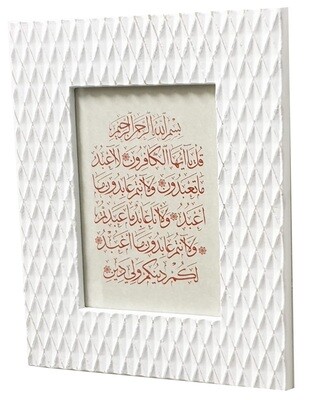 بسم الله الرحمن الرحيم
قل يا أيها الكافرون لا أعبد
ما تعبدون ولا أنتم عابدون ما
أعبد ولا أنا عابد ما عبدتم
ولا أنتم عابدون ما أعبد
لكم دينكم ولي دين